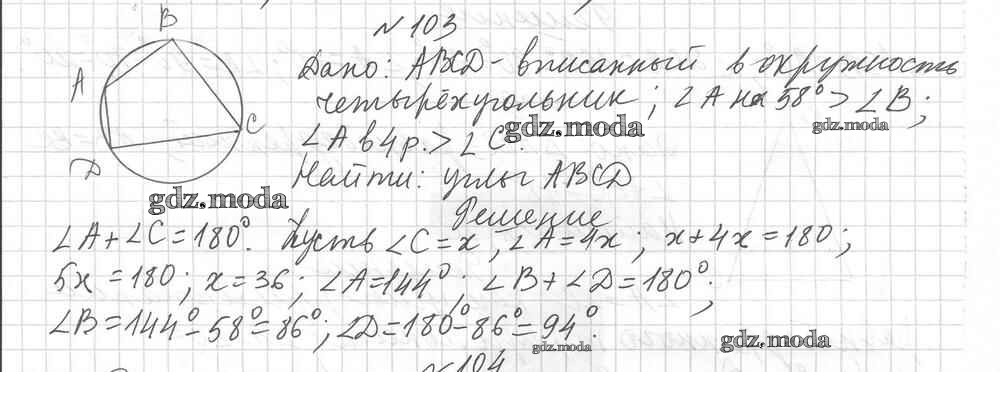 № 103
B
A
C
D
Дано: ABCD - вписанный в окружность
четырёхугольник; ∠A на 58° > ∠B;
∠A в 4 р. > ∠C.
gdz.moda
gdz.moda
Найти: углы ABCD
gdz.moda
Решение
∠A + ∠C = 180°. Пусть ∠C = x, ∠A = 4x; x + 4x = 180;
5x = 180; x = 36; ∠A = 144°; ∠B + ∠D = 180°;
∠B = 144° - 58° = 86°; ∠D = 180° - 86° = 94°.
gdz.moda
gdz.moda
№ 104